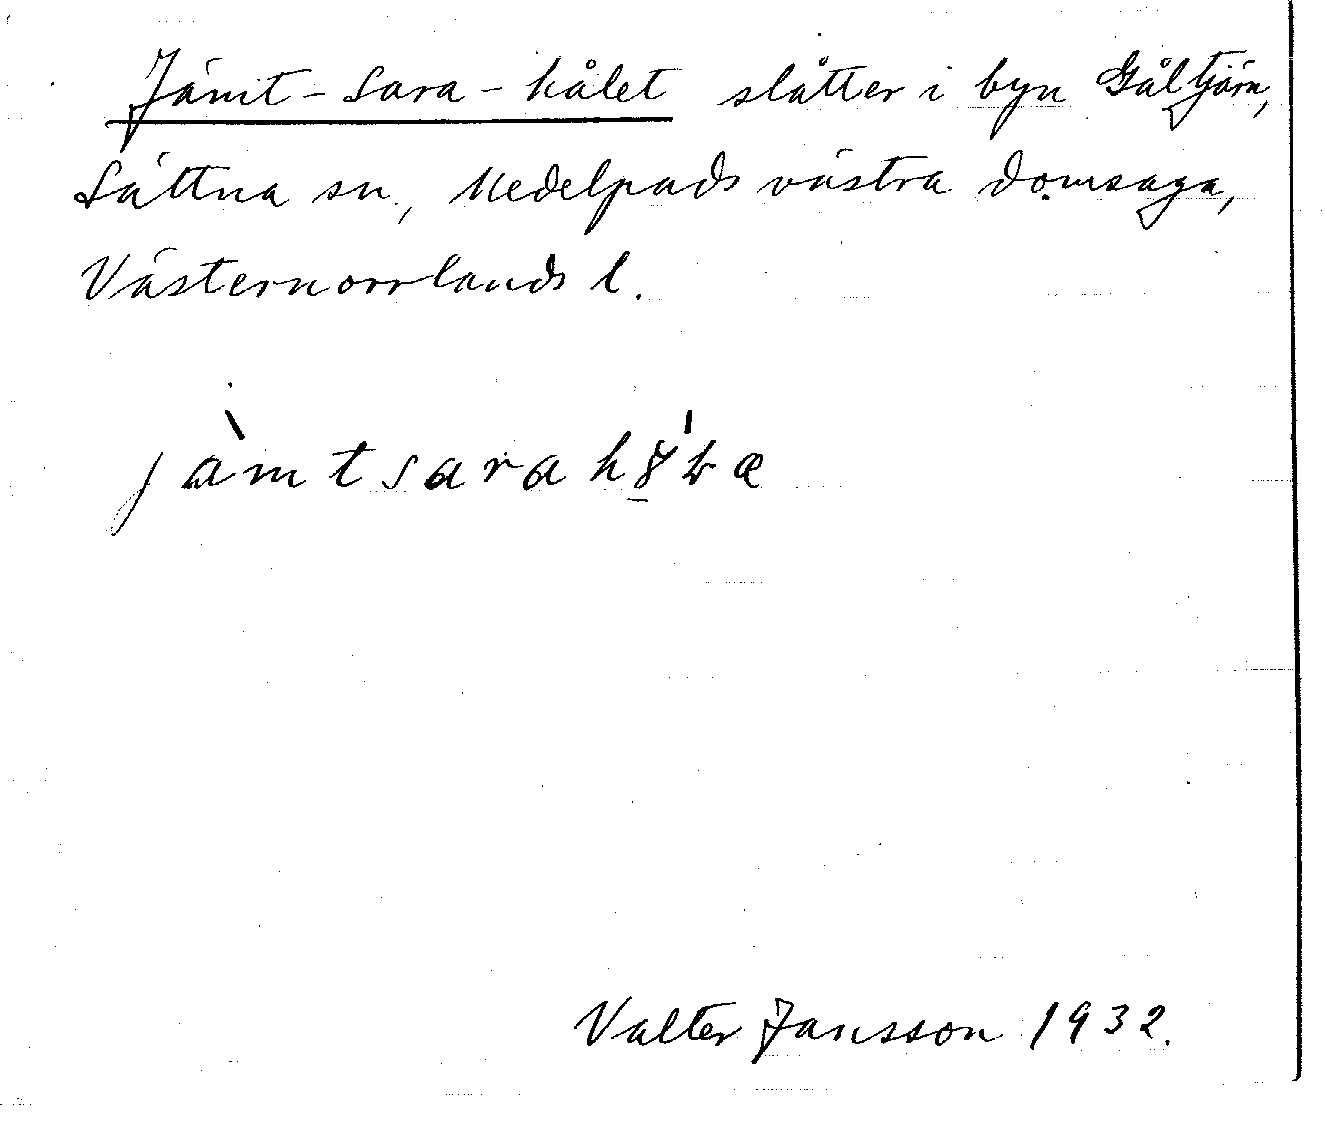 Jämt-Sara-hålet slåtter i byn Gåltjärn,
Sättna sn, Medelpads västra domsaga,
Västernorrlands l.
Valter Jansson 1932.